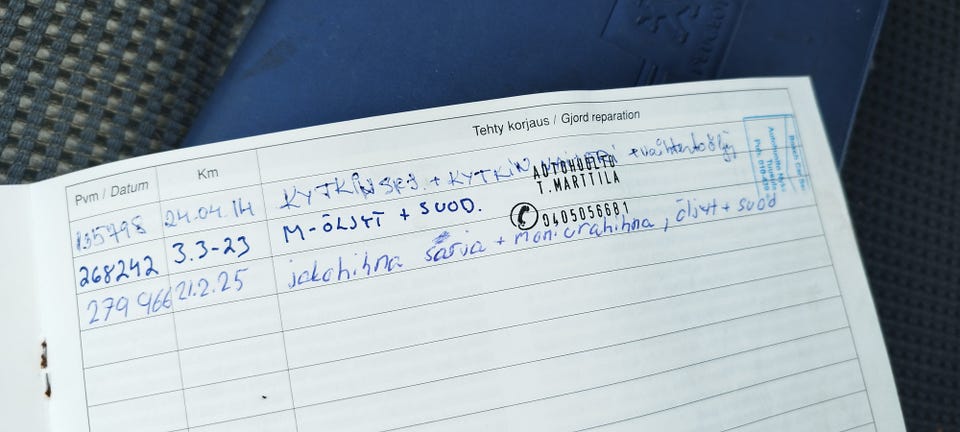 Tehty korjaus / Gjord reparation
Pvm / Datum Km
135798 24.04.14 KYTKINSRJ. + KYTKIN + vaihteistoöljy
AUTOHUOLTO
T. MARTTILA
0405056681
268242 3.3-23 M-ÖLJYT + SUOD.
279 966 21.2.25 jakohihna sarja + moniurahihna, öljyt + suod